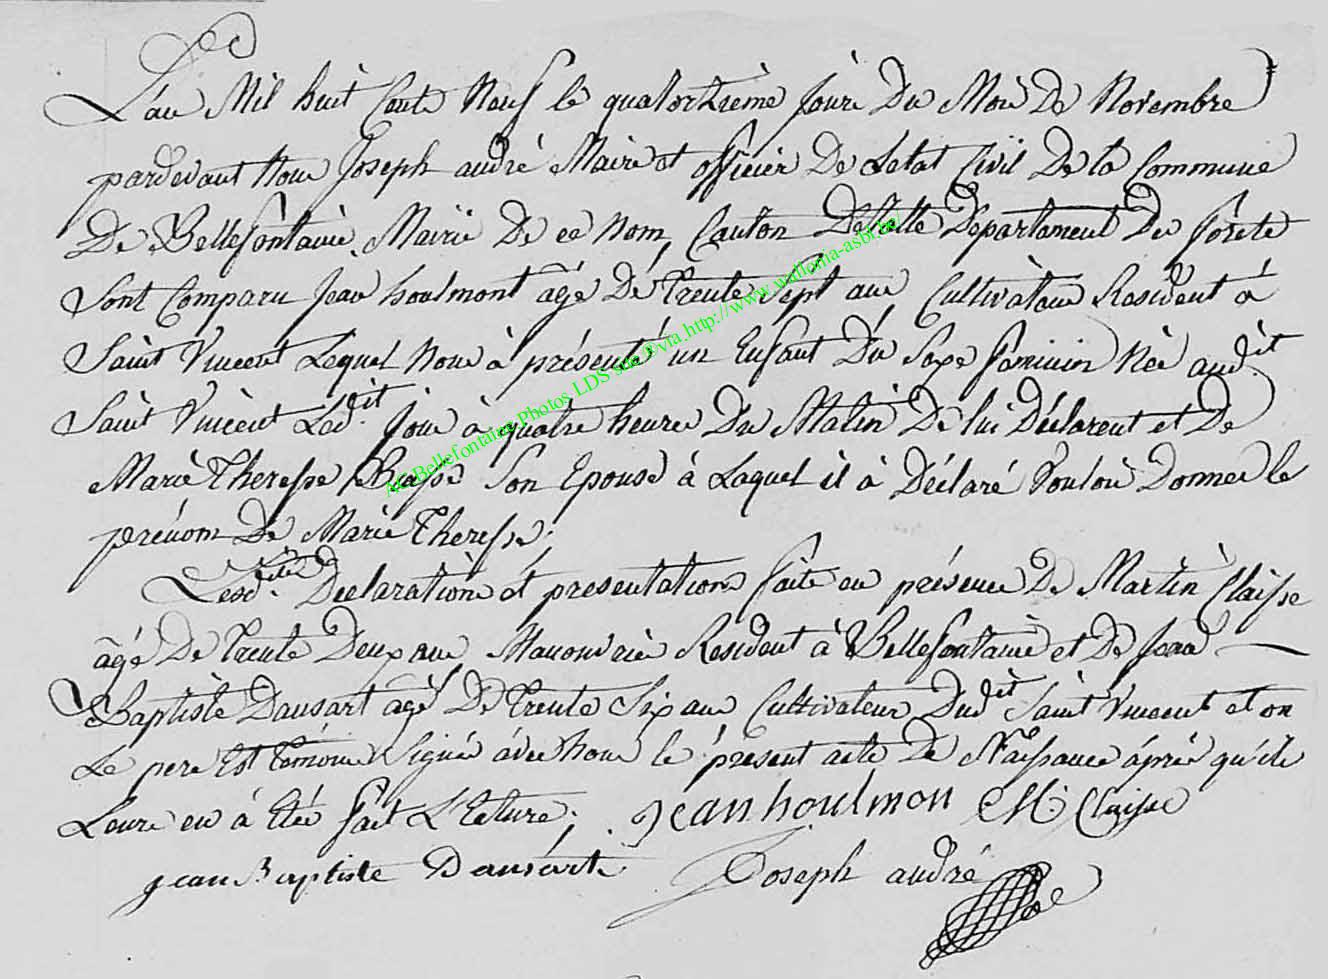 L'an Mil huit Cents Neuf le quatorzième jour Du Mois De Novembre
pardevant Nous Joseph andré Maire et officier De Letat Civil De la Commune
De Bellefontaine Mairie De ce Nom, Canton Detalle Departement Des forets
Sont Comparu Jean houlmont âgé De Trente Sept ans Cultivateur Resident à
Saint Vincent Lequel Nous à présenté un Enfant Du Sexe feminin Née audit
Saint Vincent Ledit jour à quatre heures Du Matin De lui Déclarent et De
Marie Theresse Son Epouse à Laquel il à Déclaré Vouloir Donner le
prénom De Marie Theresse;
Lesdites Declarations et presentations faite en présence De Martin Claisse
âgé De Trente Deux ans Manouvrié Resident à Bellefontaine et De Jean
Baptiste Dausart âgé De Trente Six ans Cultivateur Dudit Saint Vincent et on
Le pere Et Témoins Signés avec Nous le présent acte De Naissance après qu'ils
Leure en à Eté fait L'Ecture; Jean houlmon M: Claisse
jean Baptiste Dausart Joseph andré
AC Bellefontaine Photos LDS site ©vfa http://www.wallonia-asbl.be/